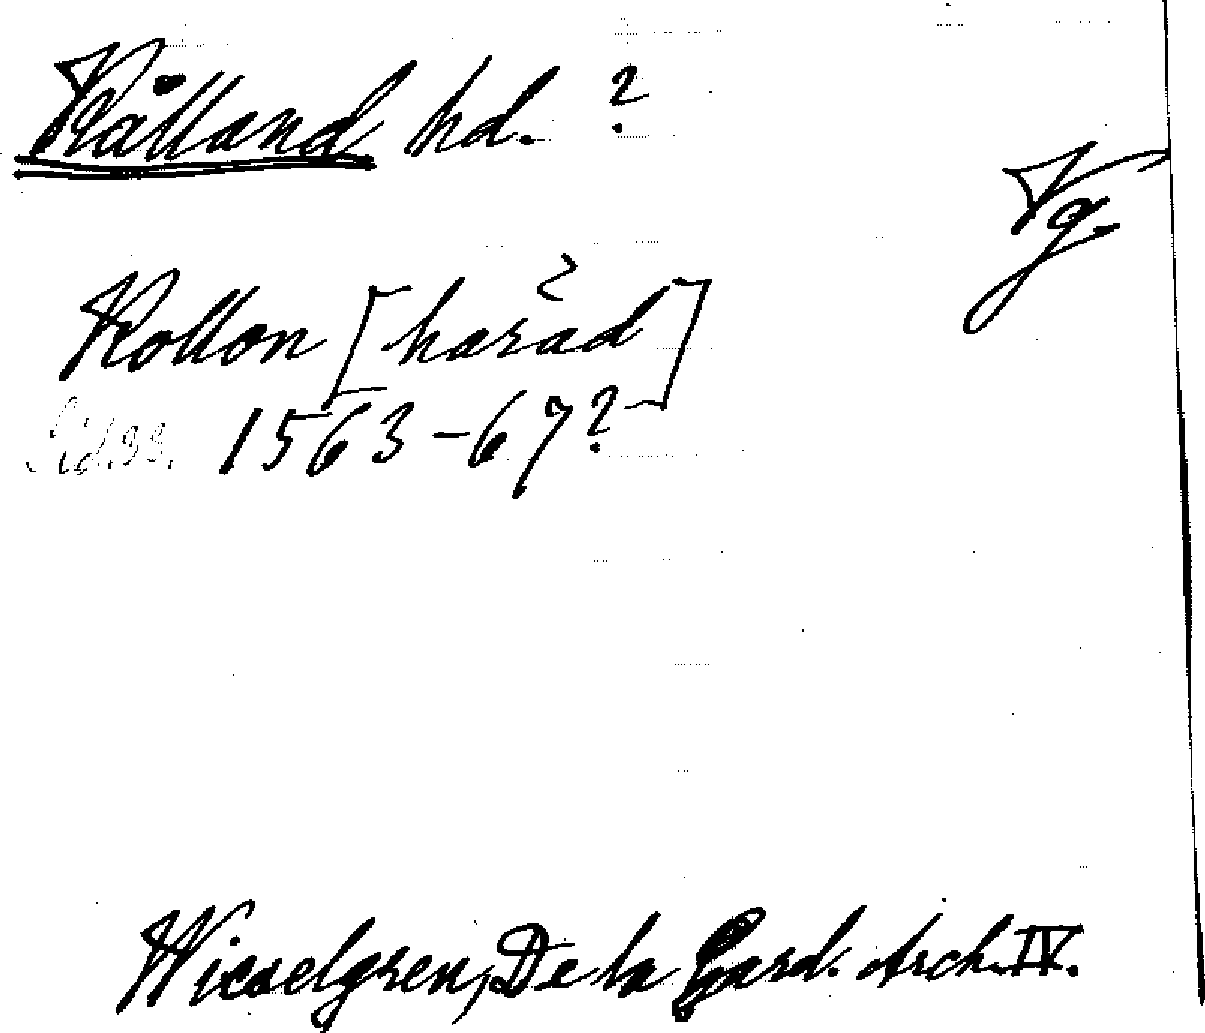 Kålland hd. ?
Vg.
Kollon [haråd]
1563-67?
Wieselgren, De la Gard. Arch. IV.